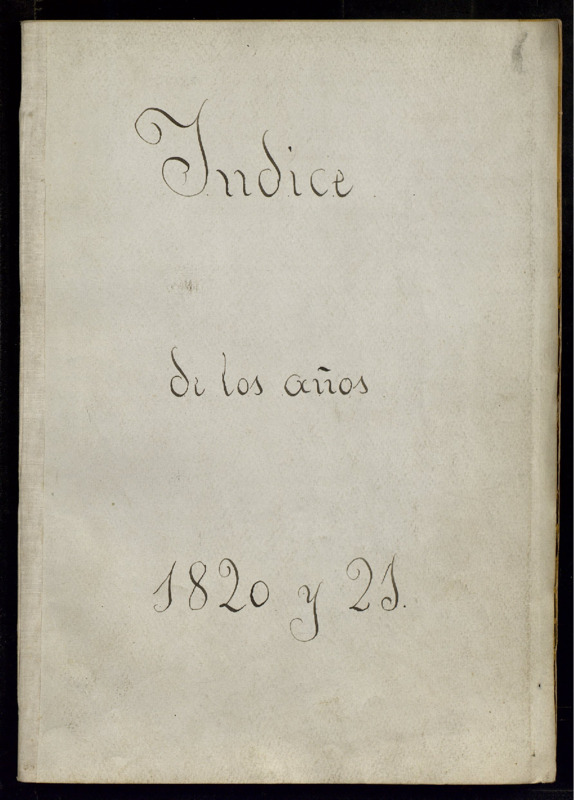 Indice
de los años
1820 y 21.